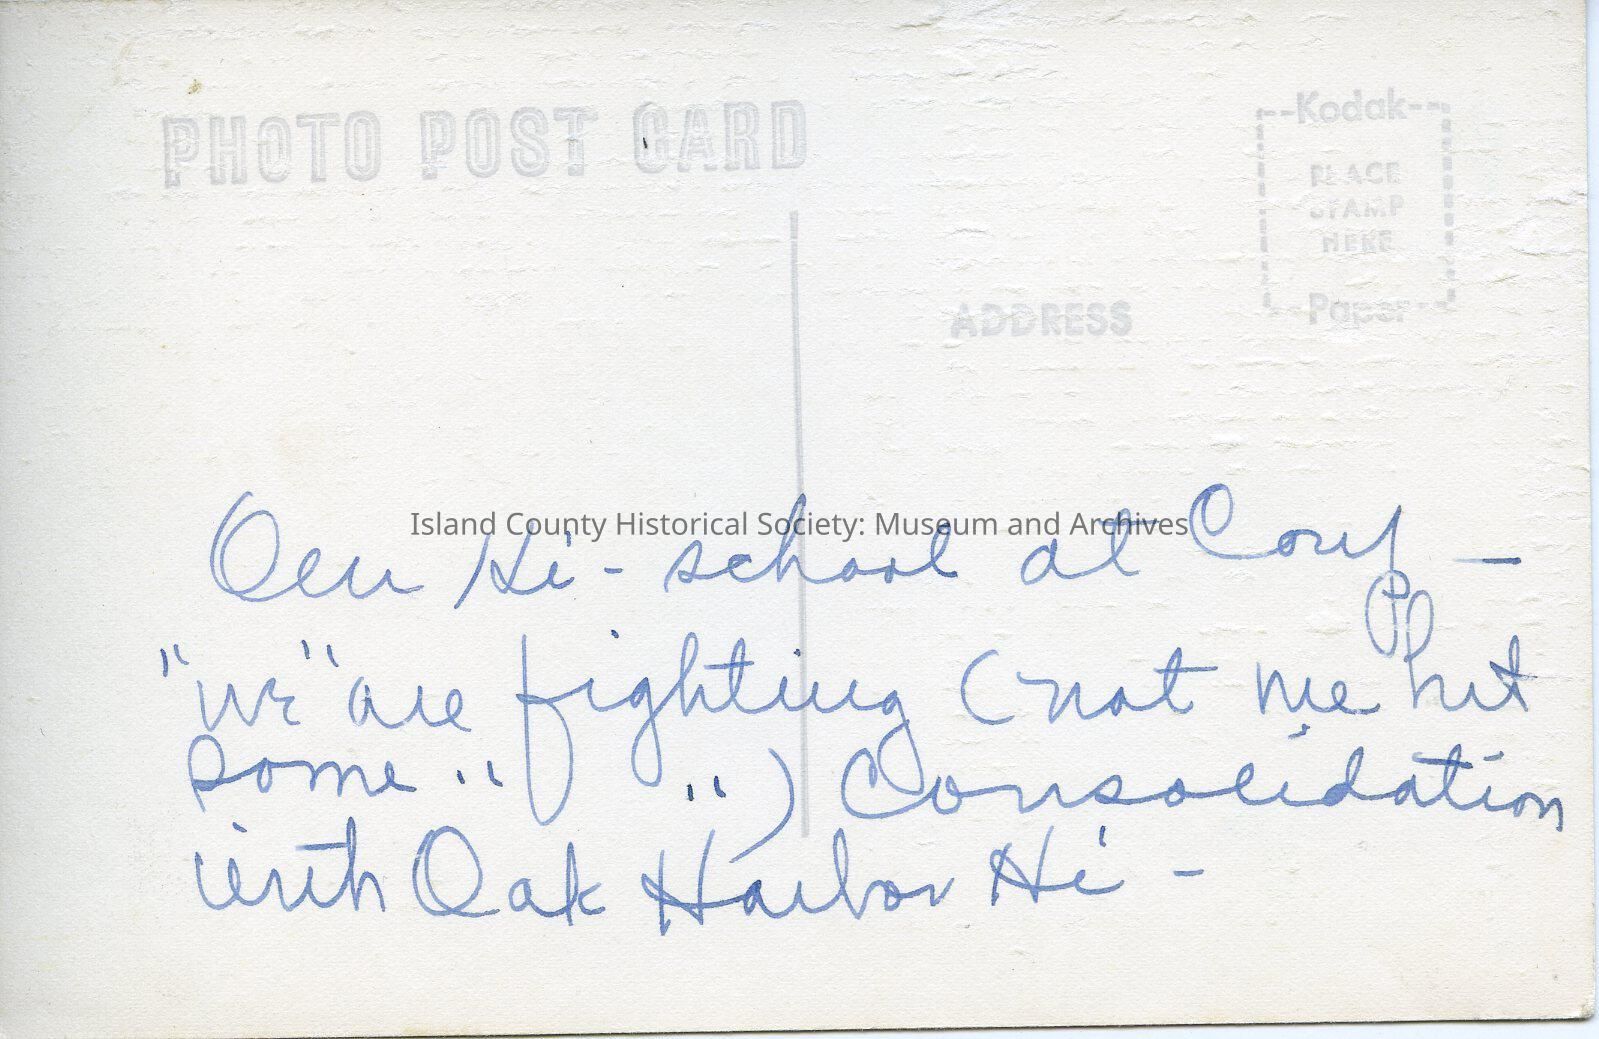 PHOTO POST CARD
--Kodak--
PLACE
STAMP
HERE
--Paper--
ADDRESS
Island County Historical Society: Museum and Archives
Our Hi-school at Coup —
"we" are fighting (not me but
some " ") Consolidation
with Oak Harbor Hi -